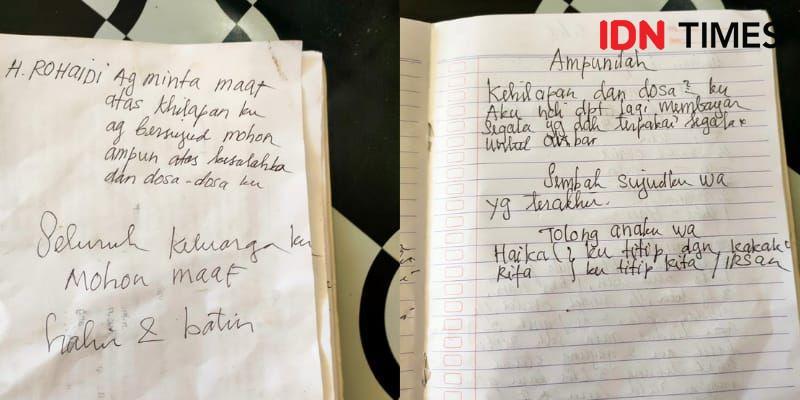 H. ROHAIDI Ag minta maaf
atas khilapan ku
ag bersujud mohon
ampun atas kesalahka
dan dosa-dosa ku
Seluruh keluarga ku
Mohon maaf
Lahir & batin
IDN TIMES
Ampunilah
Kehilapan dan dosa2 ku
Aku ndi dpt lagi membayar
Segala yg dah terpakai segala
untuk
Sembah sujudku wa
yg terakhir.
Tolong anaku wa
Haika ku titip dgn kakak
Rita ku titip kita / IRSAN